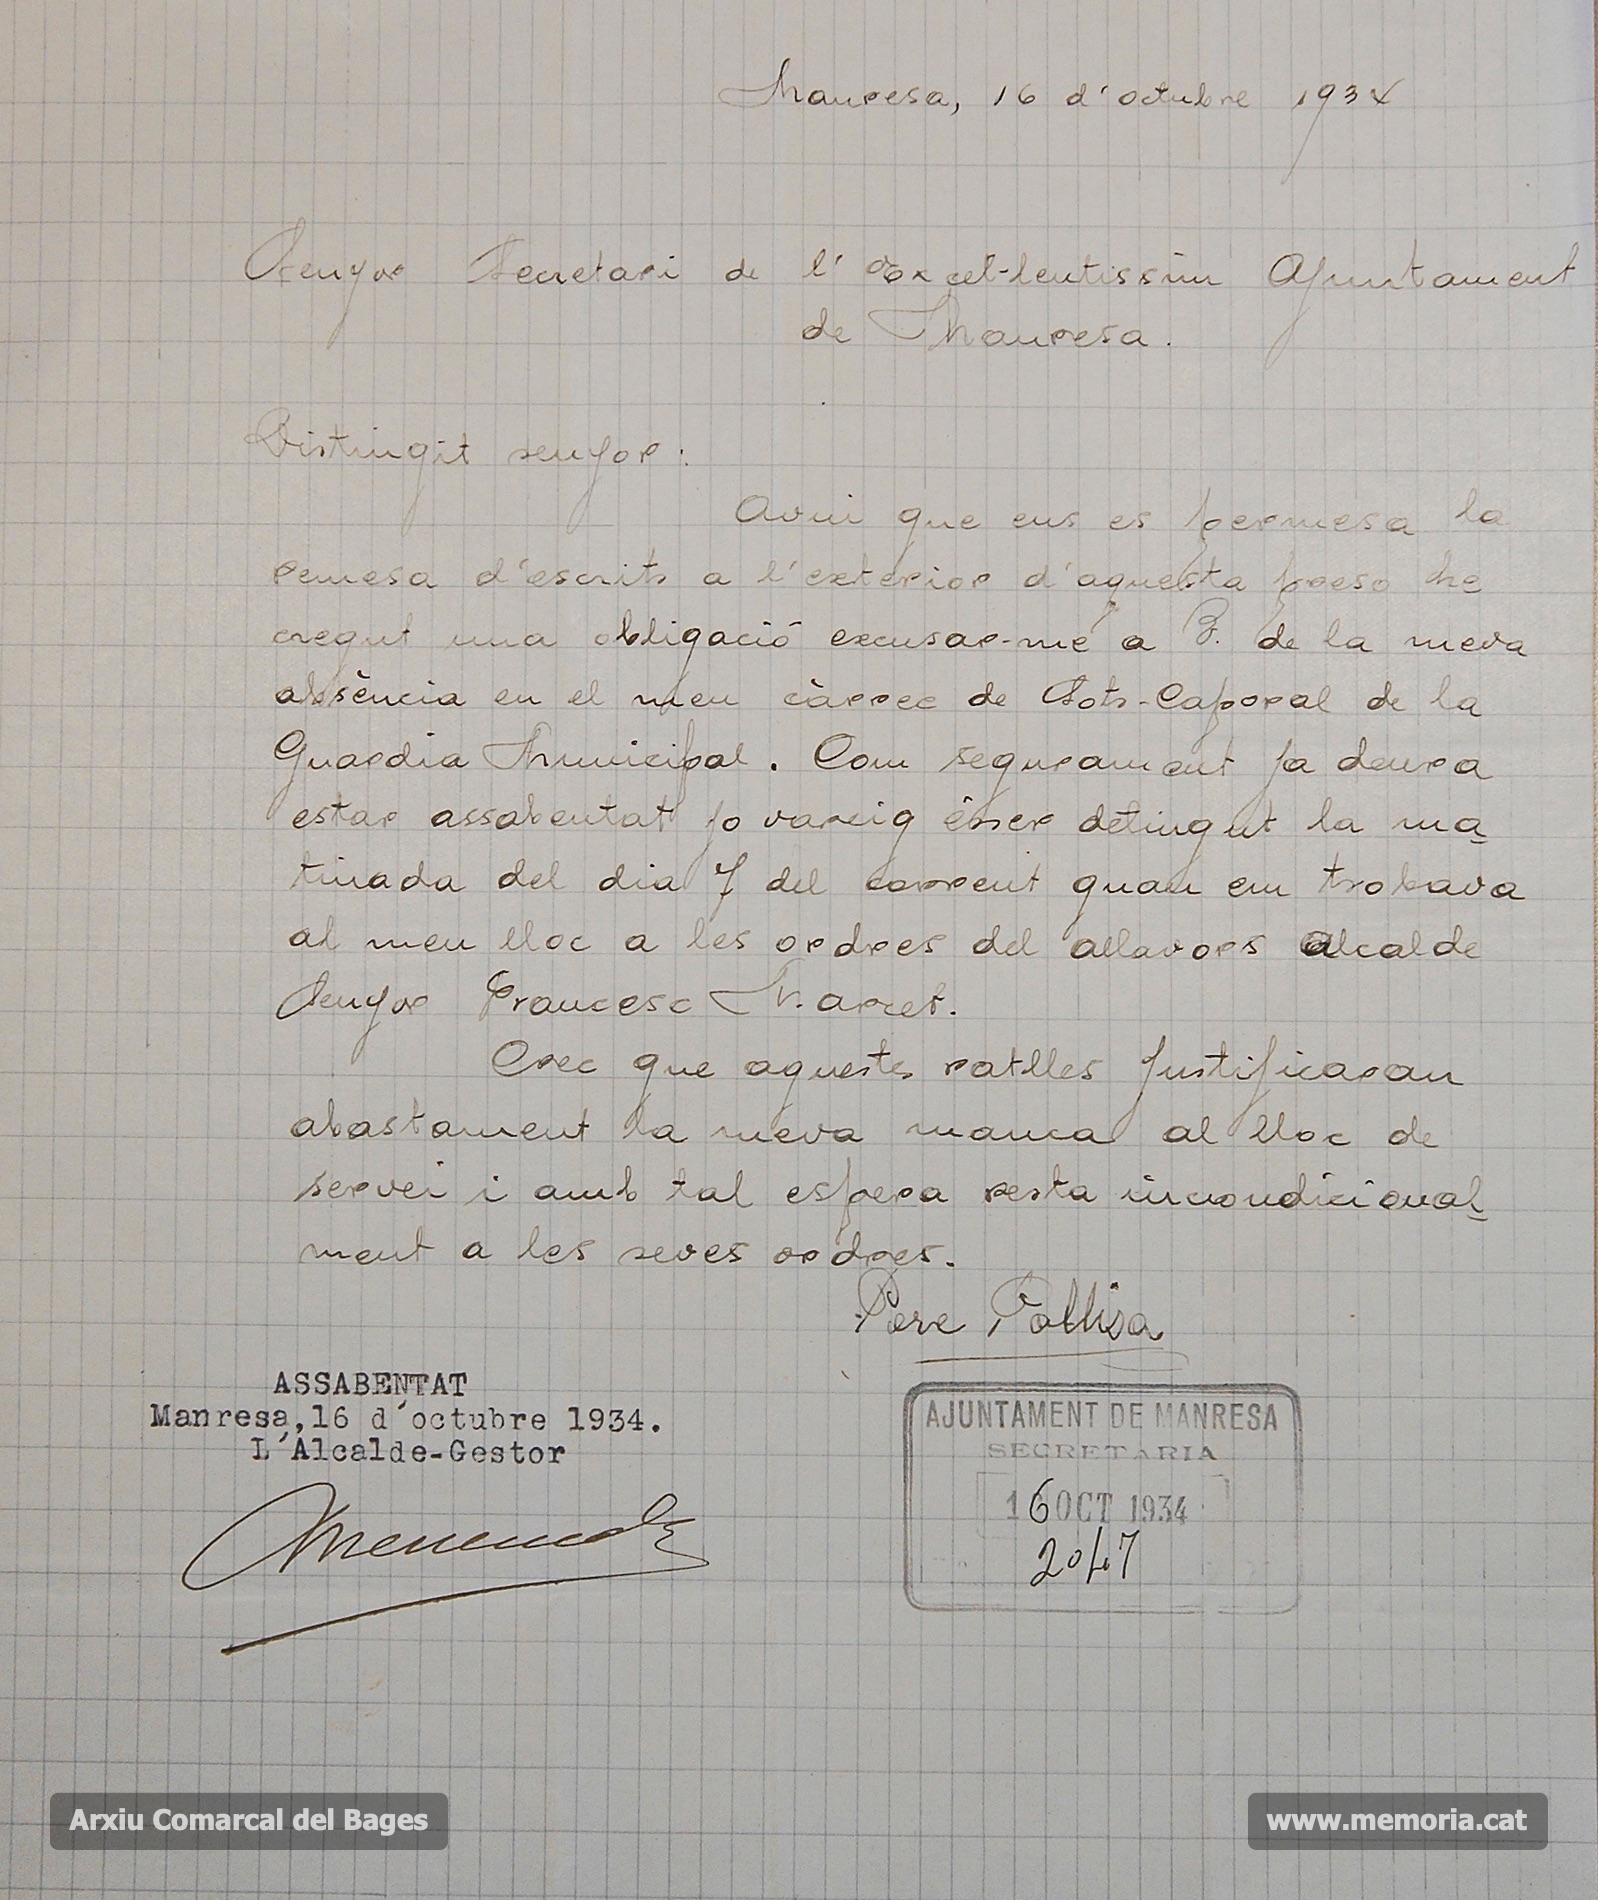 Manresa, 16 d'octubre 1934
Senyor Secretari de l'Excel·lentissim Ajuntament
de Manresa.
Distingit senyor:
Avui que ens es permesa la
remesa d'escrits a l'exterior d'aquesta preso he
cregut una obligació excusar-me a V. de la meva
absència en el meu càrrec de Sots-Caporal de la
Guardia Municipal. Com segurament ja deura
estar assabentat jo vareig ésser detingut la ma-
tinada del dia 7 del corrent quan em trobava
al meu lloc a les ordres del allavors alcalde
Senyor Francesc Marcet.
Crec que aquestes ratlles justificaran
abastament la meva manca al lloc de
servei i amb tal espera resta incondicional-
ment a les seves ordres.
Pere Pallisa
ASSABENTAT
Manresa,16 d'octubre 1934.
L'Alcalde-Gestor
AJUNTAMENT DE MANRESA
SECRETARIA
16 OCT 1934
2047
Arxiu Comarcal del Bages
www.memoria.cat